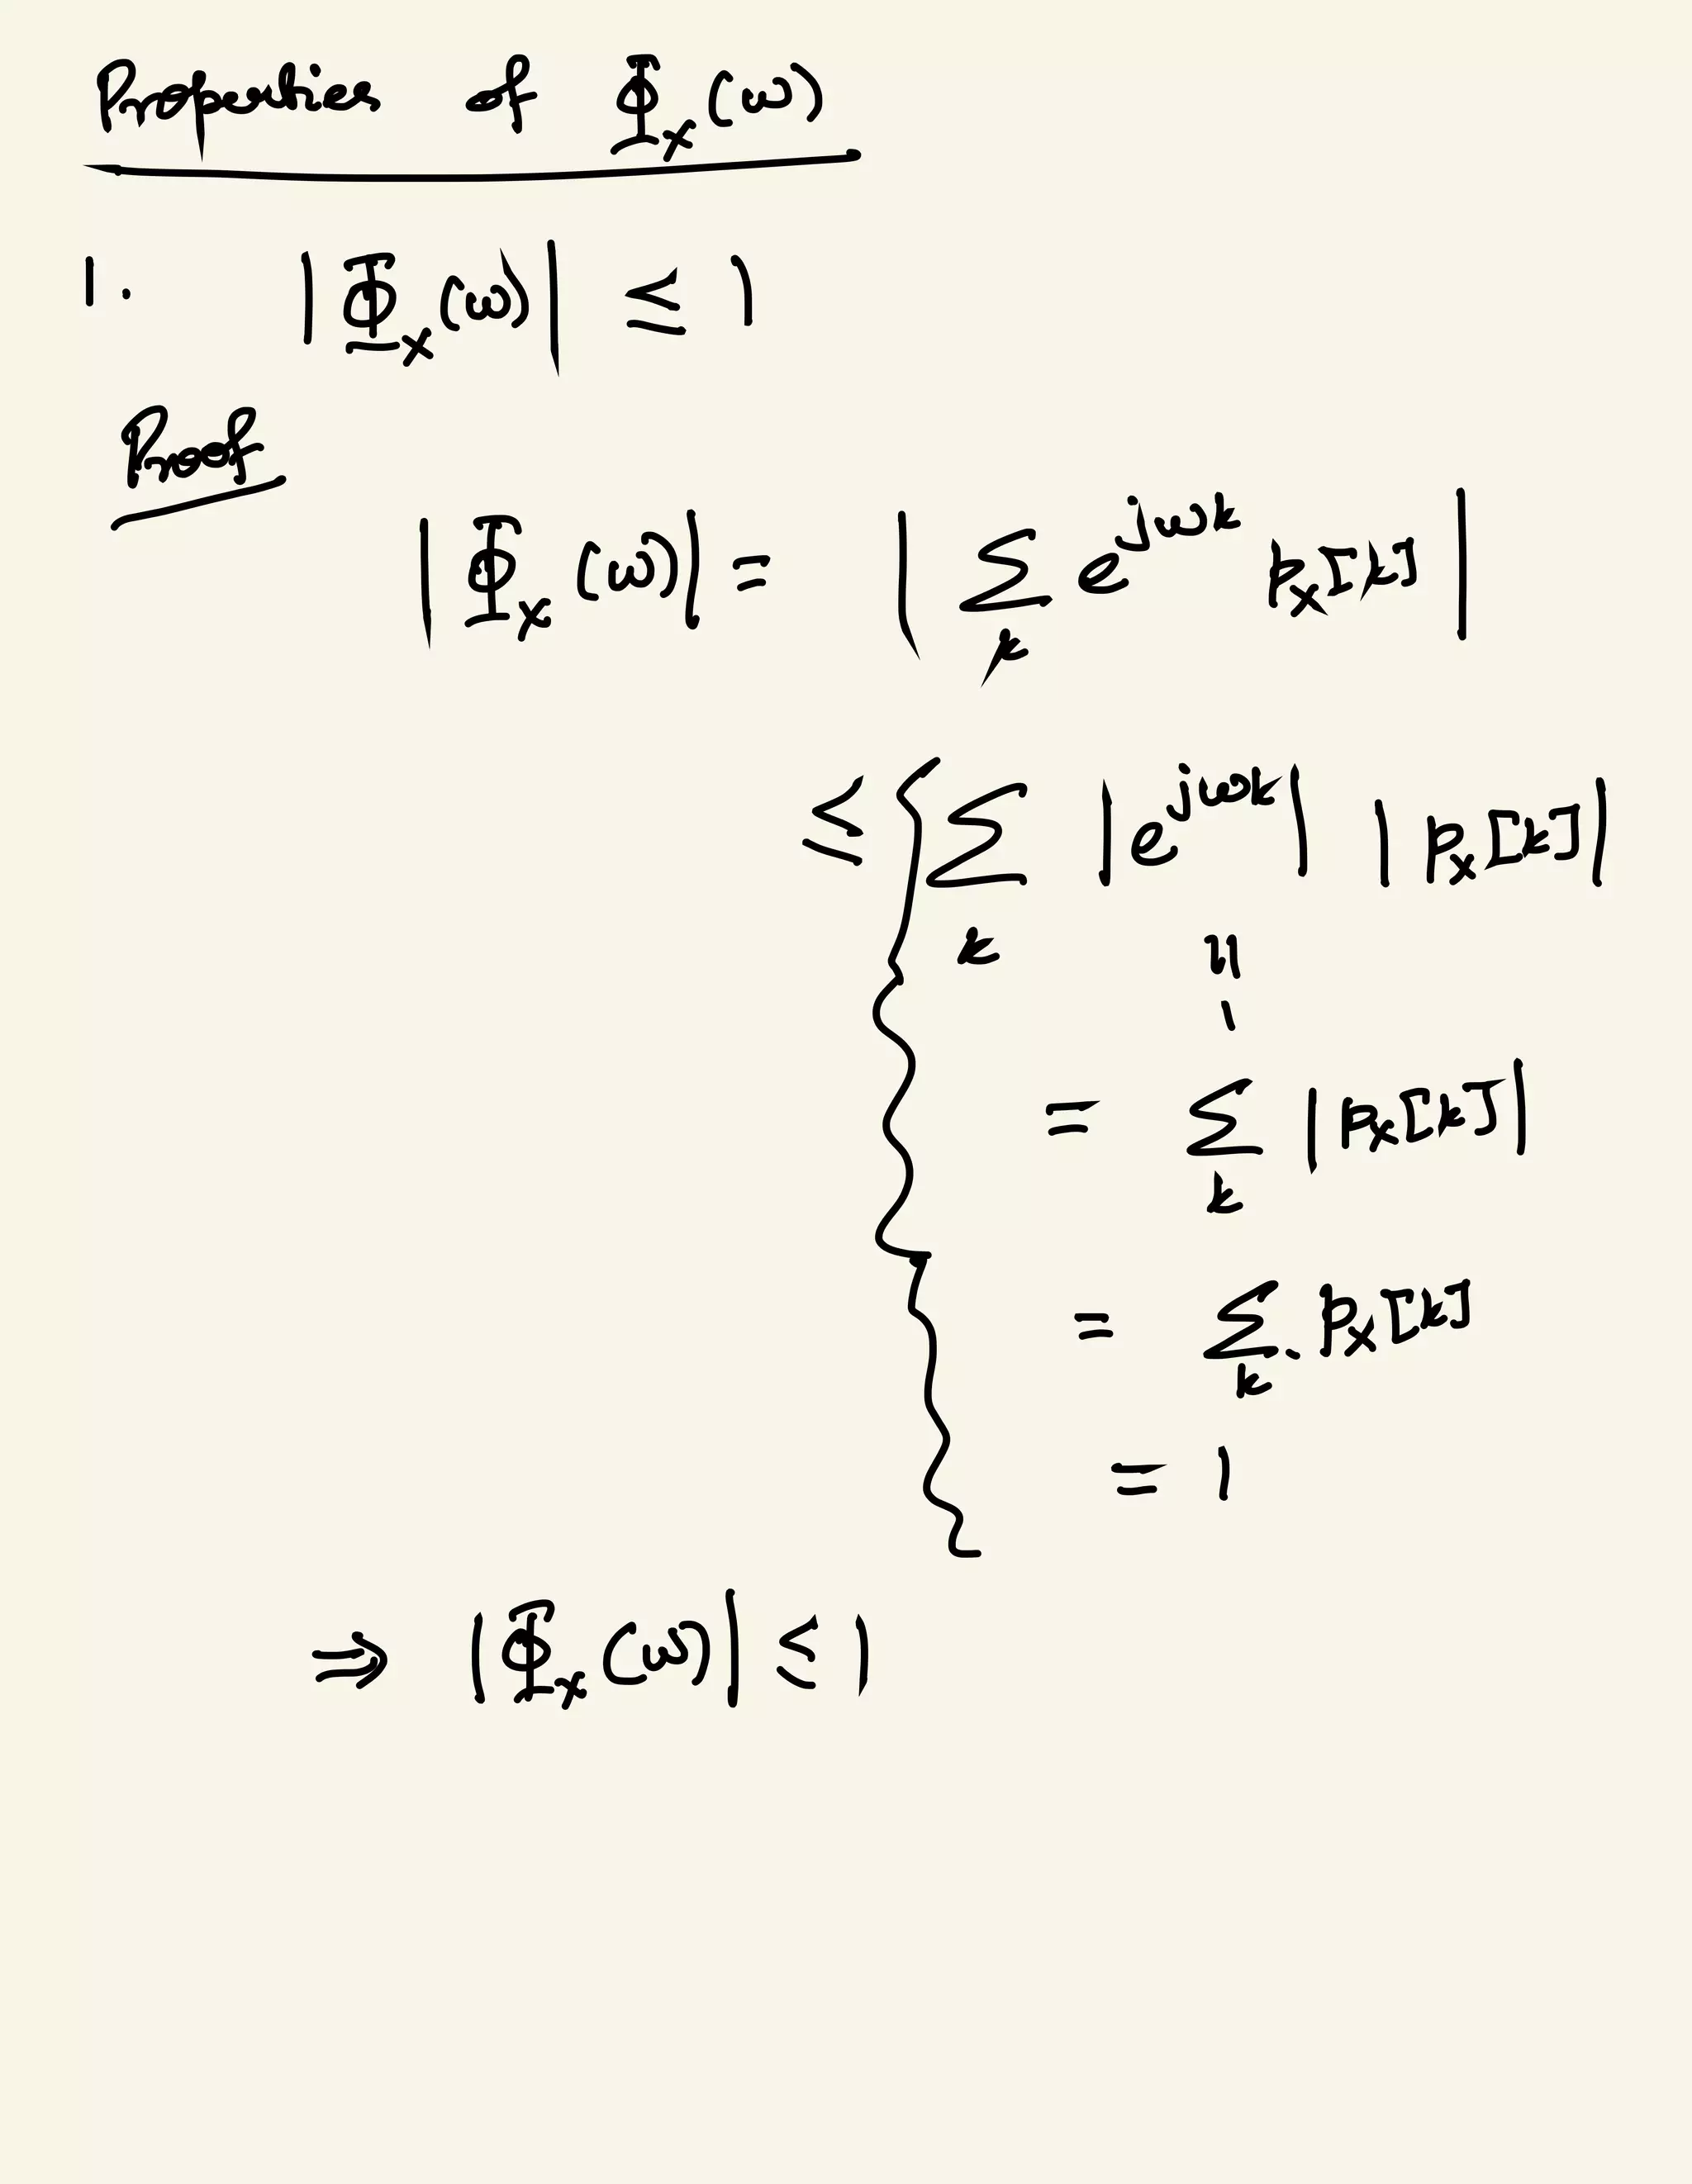 Properties of Φ_X(ω)
1. |Φ_X(ω)| ≤ 1
Proof
|Φ_X(ω)| = | Σ_k e^{jωk} p_X[k] |
≤ { Σ_k |e^{jωk}| |p_X[k]|
||
1
= Σ_k |p_X[k]|
= Σ_k p_X[k]
= 1
⇒ |Φ_X(ω)| ≤ 1